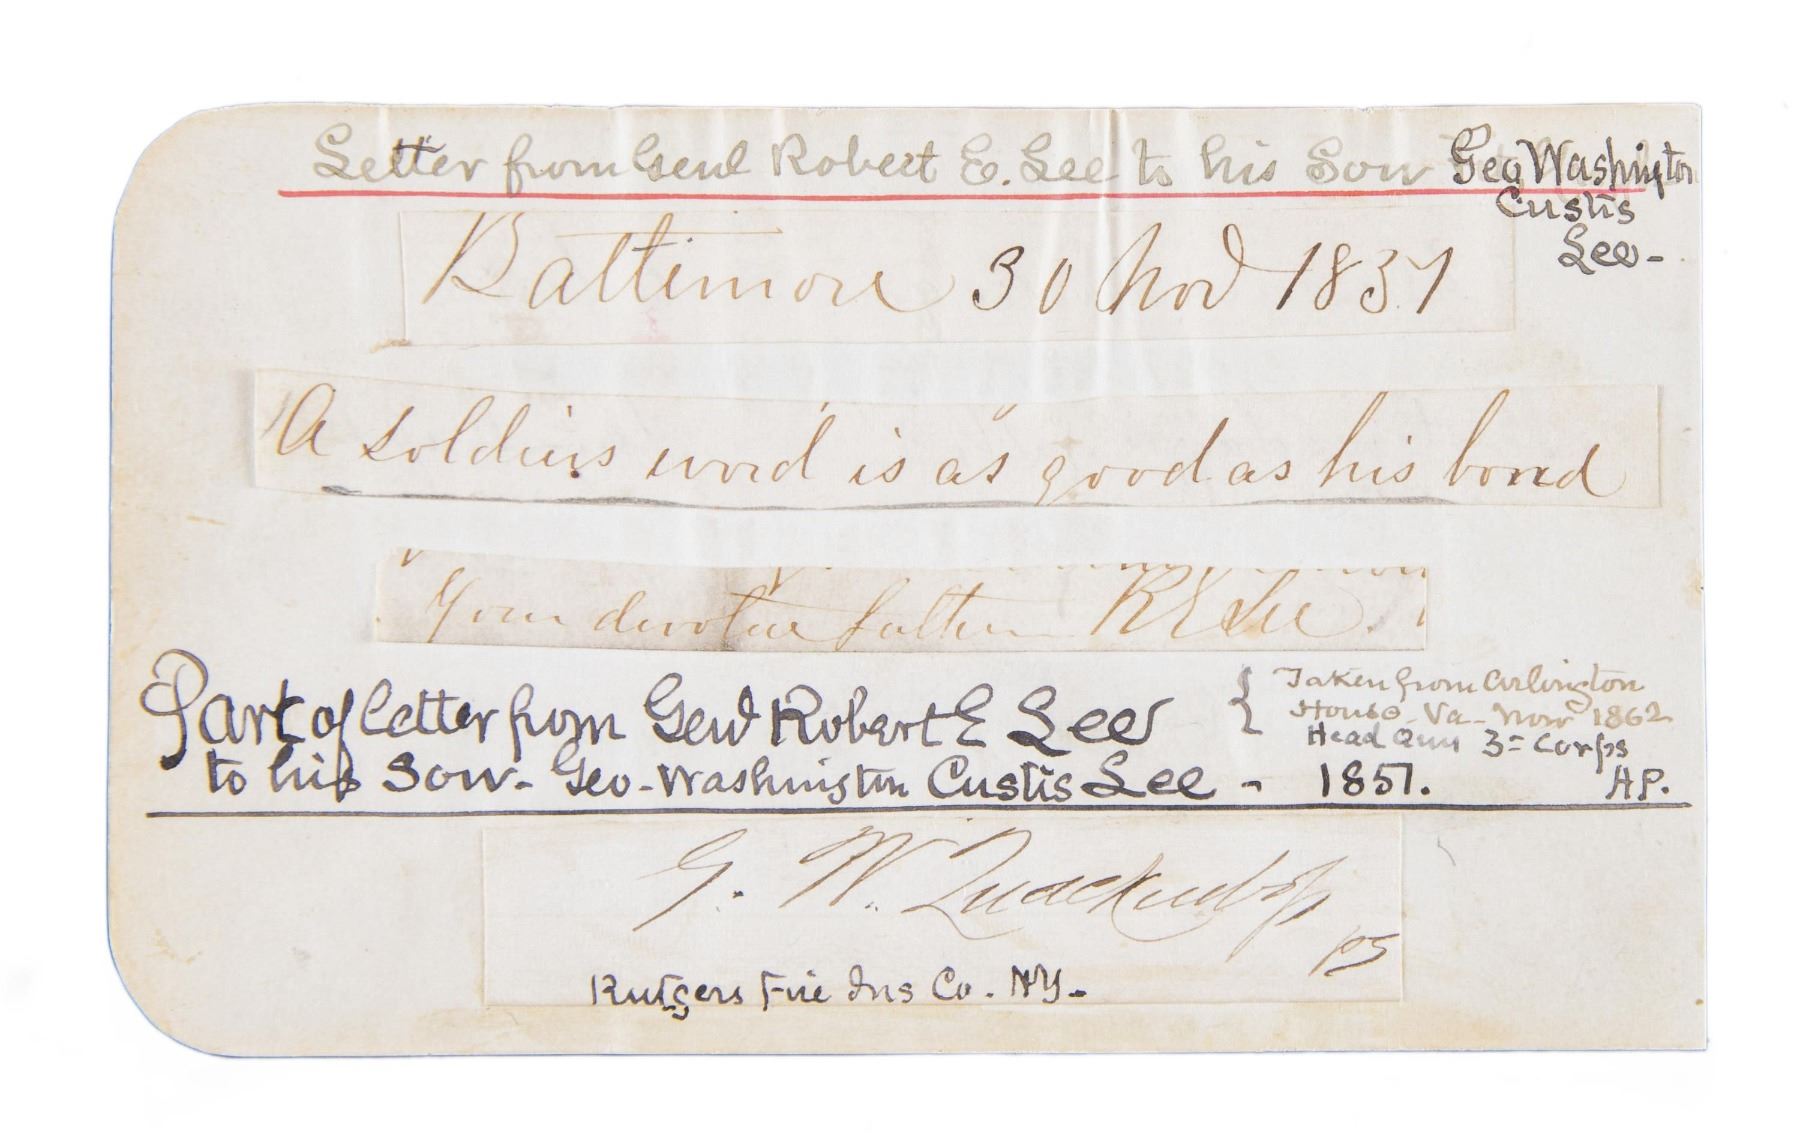 Letter from Genl Robert E. Lee to his Son Geo Washington
Custis
Lee-
Baltimore 30 Nov 1851
A soldiers word is as good as his bond
Your devoted father R E Lee.
Part of letter from Genl Robert E Lee
to his Son- Geo-Washington Custis Lee - 1851.
{ Taken from Arlington
House-Va-Nov 1862
Head Qrs 3= Corps
A.P.
G. W. Quackenbos
Rutgers Fire Ins Co. NY-